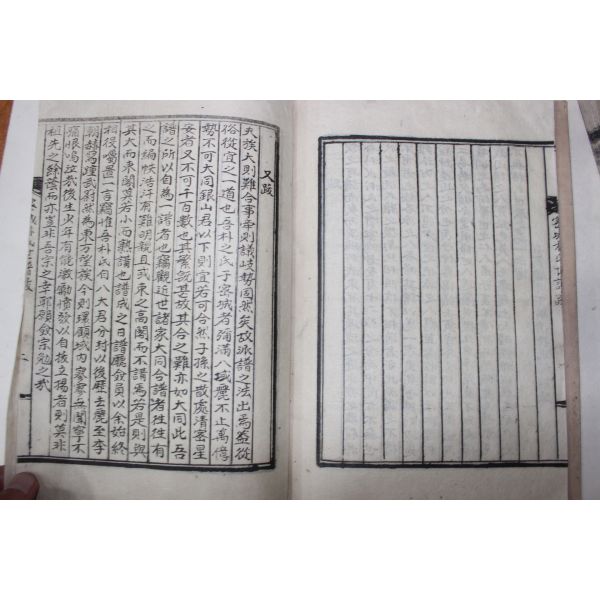 又跋
夫族大則難合事帝則議歧勢固然矣故派譜之法出焉盖從
俗從宜之一道也吾朴之氏于密城者彌滿八域麗不止萬億
勢不可大同銀山君以下則宜若可合然子孫之散處清密星
安者又不可千百數也其繁旣甚故其合之難亦如大同此吾
譜之所以自為一譜者也竊觀近世諸家大同合譜者往往有
之而編帙浩汗有難明親且或束之高閣而不譜焉若是則與
其大而束閣莫若小而熟譜也譜成之日譜廳僉員以余始終
相役囑置一言竊惟吾朴氏自八大君分封以後歷去麗至李
朝赫舄理武蔚然為東方望族今則環顧域內寥寥無聞寧不
痛恨嗚泣哉後生少年有能激勵憤發以自拔立揚者則莫非
祖先之餘蔭而亦豈非吾宗之幸耶願僉宗勉之哉